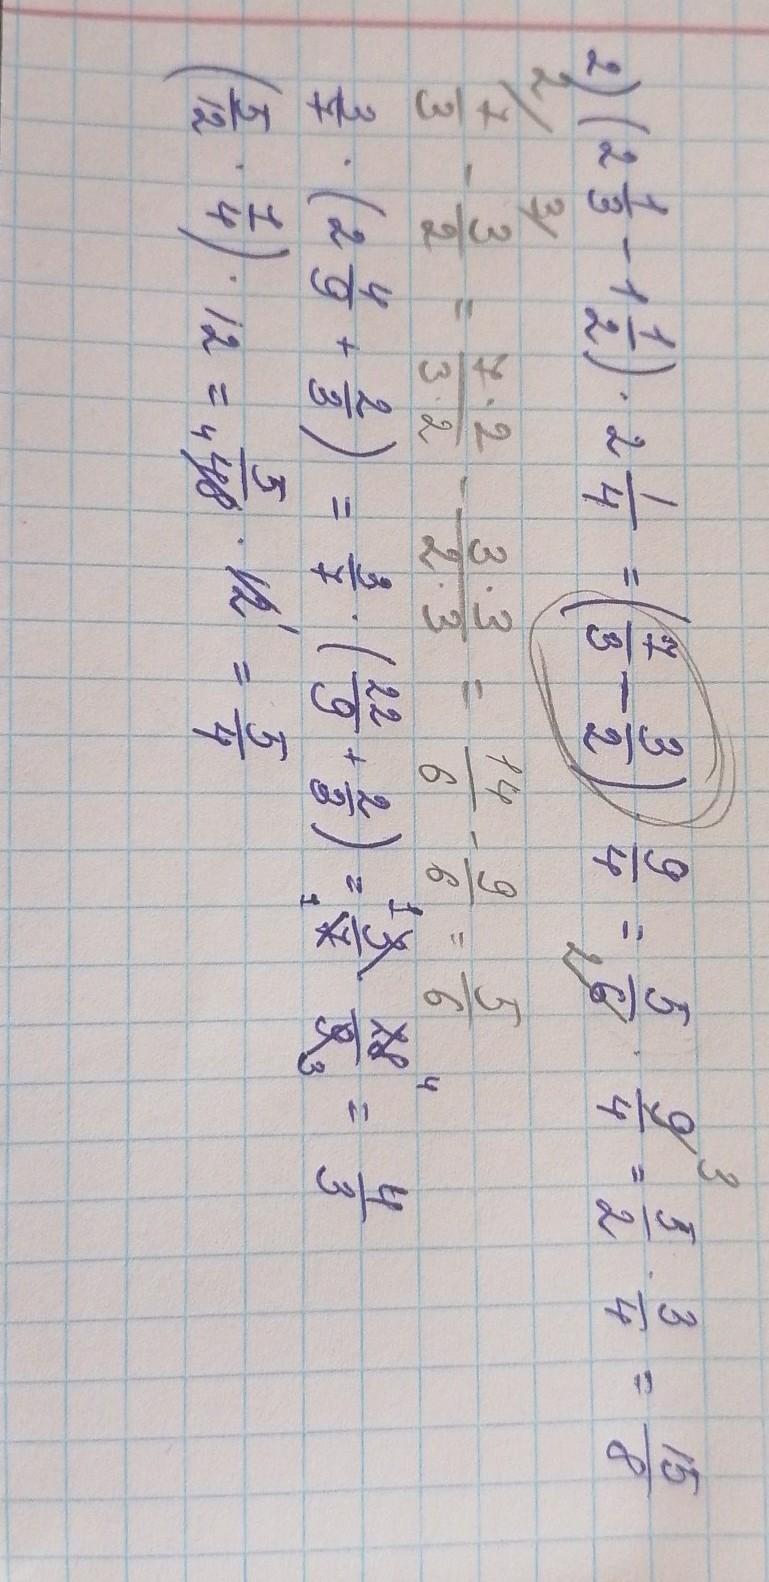 2) (2 1/3 - 1 1/2) · 2 1/4 = (7/3 - 3/2) · 9/4 = 5/6 · 9/4 = 5/2 · 3/4 = 15/8
7/3 - 3/2 = 7·2/3·2 - 3·3/2·3 = 14/6 - 9/6 = 5/6
3/7 · (2 4/9 + 2/3) = 3/7 · (22/9 + 2/3) = 3/7 28/9 = 4/3
(5/12 · 1/4) · 12 = 5/48 · 12 = 5/4